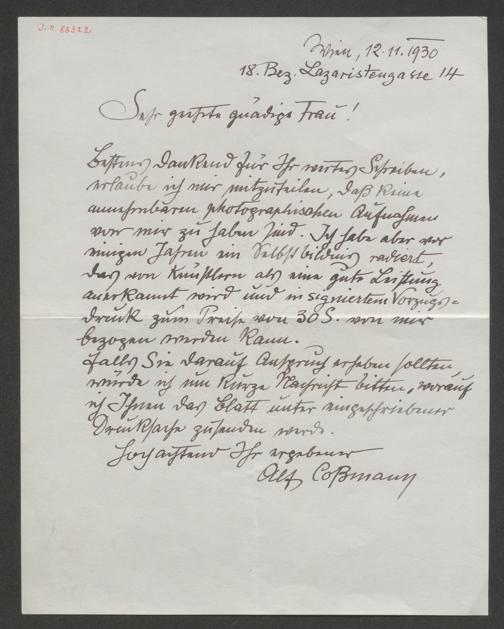 J.N. 83322
Wien, 12.11.1930
18. Bez. Lazaristengasse 14
Sehr geehrte gnädige Frau!
Bestens dankend für Ihr wertes Schreiben,
erlaube ich mir mitzuteilen, daß keine
annehmbaren photographischen Aufnahmen
von mir zu haben sind. Ich habe aber vor
einigen Jahren ein Selbstbildnis radiert,
das von Künstlern als eine gute Leistung
anerkannt wird und in signiertem Vorzugs=
druck zum Preise von 30 S. von mir
bezogen werden kann.
Falls Sie darauf Anspruch erheben sollten,
würde ich um kurze Nachricht bitten, worauf
ich Ihnen das Blatt unter eingeschriebener
Drucksache zusenden werde.
Hochachtend Ihr ergebener
Alf. Coßmann